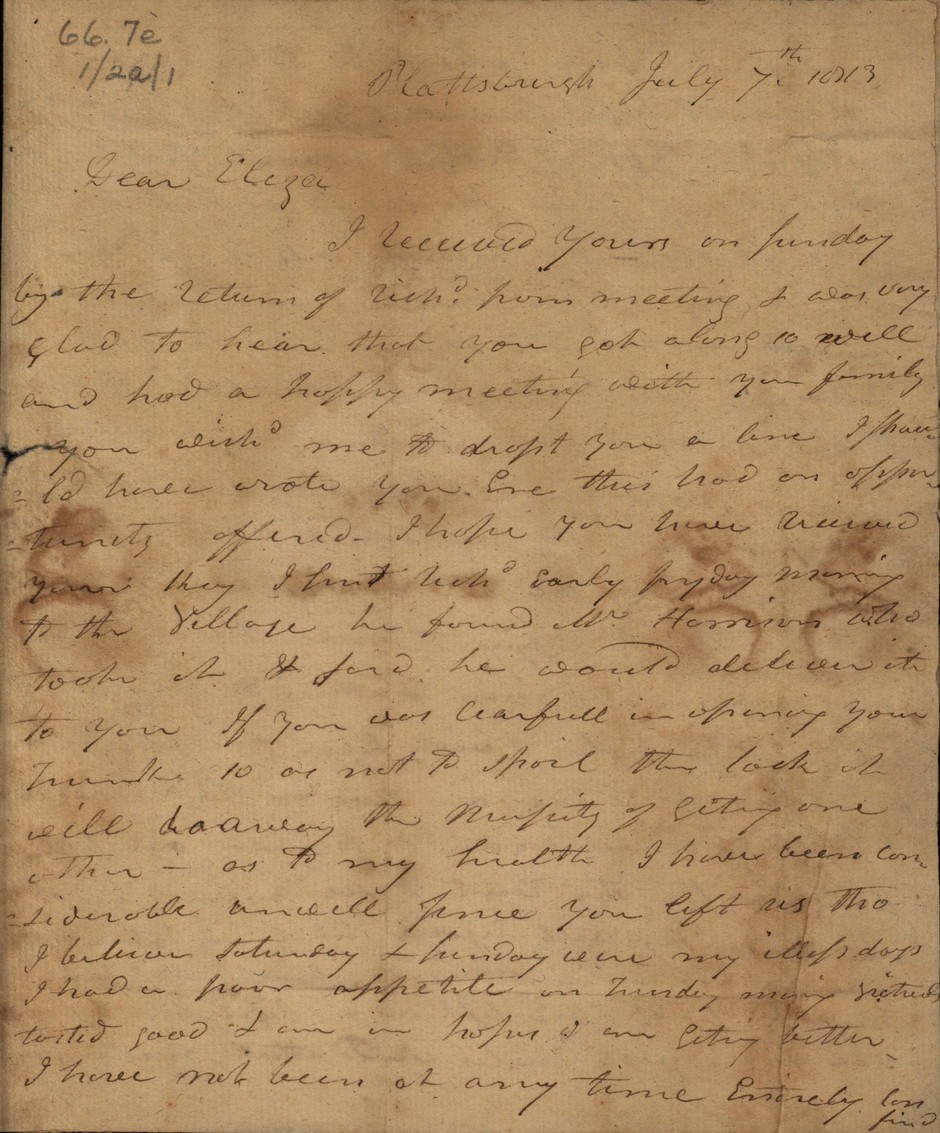 66.7e
1/2a/1
Plattsburgh July 7th 1813
Dear Eliza
I received yours on Sunday
by the return of Richd. from meeting & was very
glad to hear that you got along so well
and had a happy meeting with your family
you wishd me to dropt you a line I shou
=ld have wrote you Ere this had an oppor
=tunity offered - I hope you have received
your key I sent Richd early fryday morning
to the Village he found Mr Harrison who
took it & said he would deliver it
to you If you was carefull in opening your
Trunk so as not to spoil the lock it
will do away the Nessity of geting ano
other - as to my health I have been con
=siderable unwell since you left us tho
I believe Saturday & Sunday were my illest days
I had a poor appetite on Tuesday morning victuals
tasted good & am in hopes I am geting better
I have not been at any time Entirely con
find